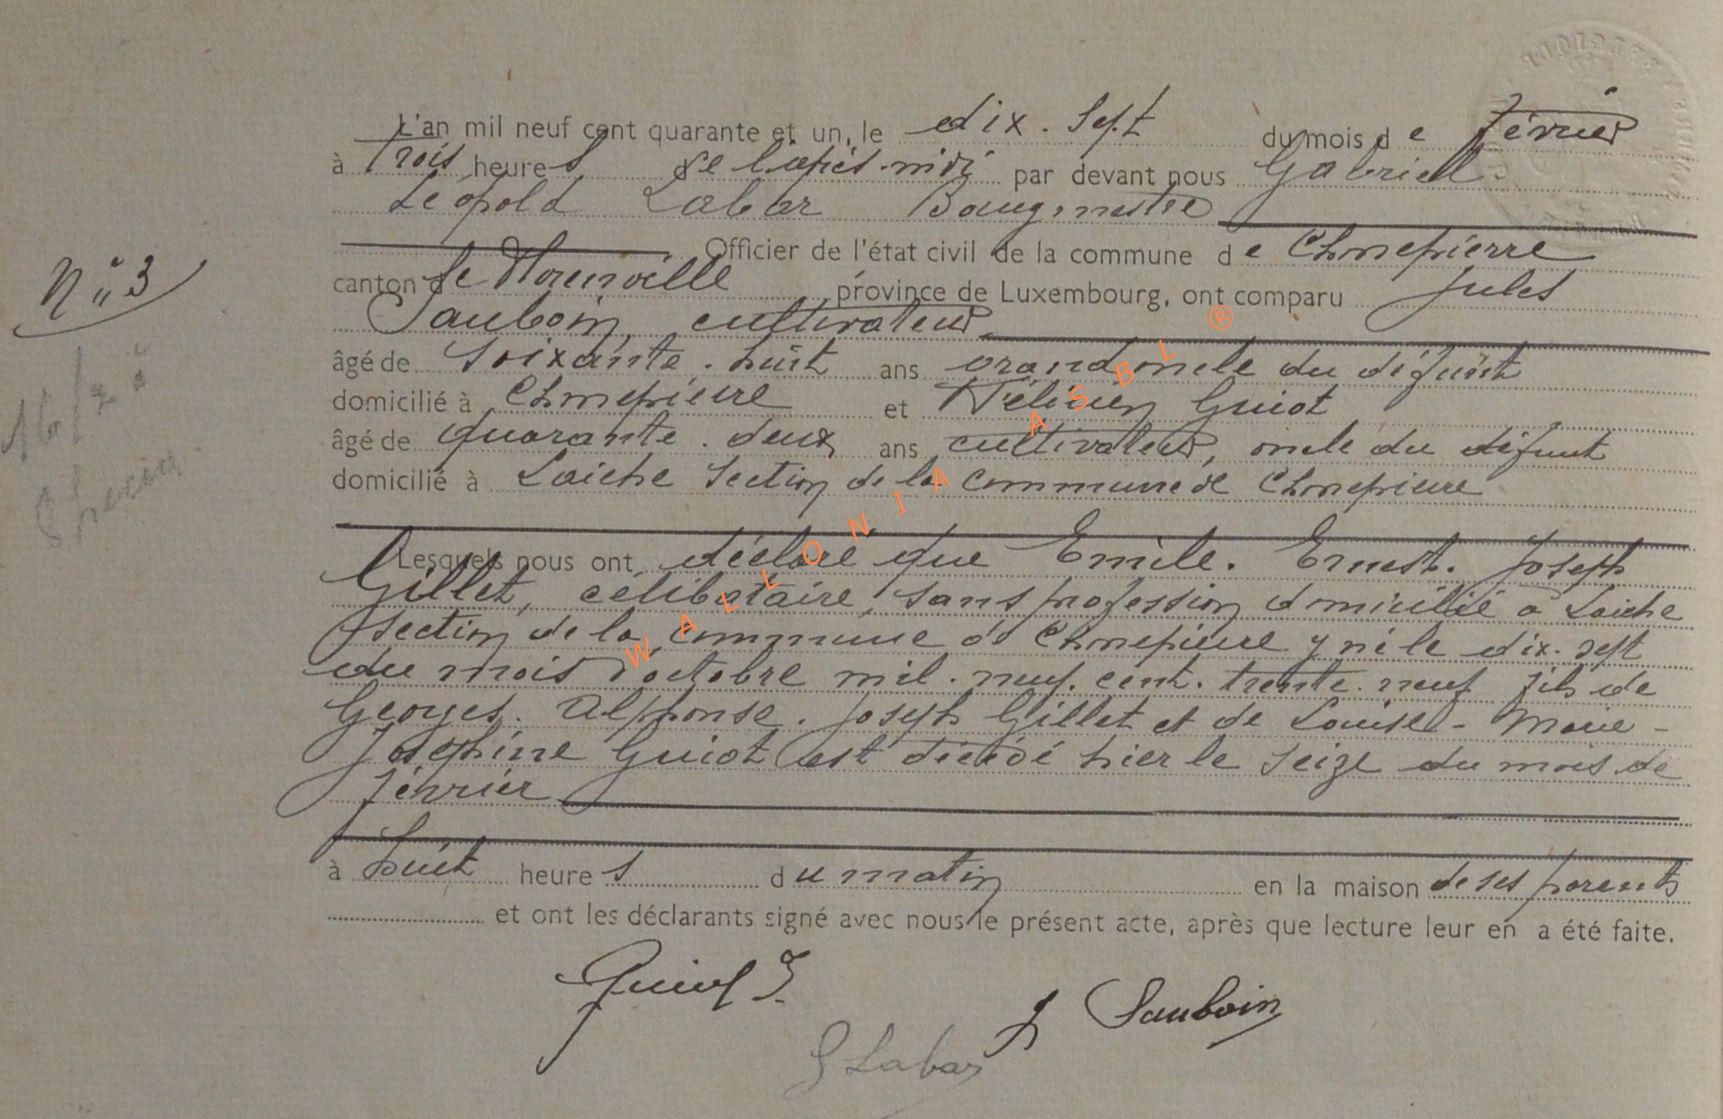 L'an mil neuf cent quarante et un, le dix-sept du mois de février
à trois heures de l'après-midi par devant nous Gabriel
Léopold Labar Bourgmestre
Officier de l'état civil de la commune de Chassepierre
canton de Florenville province de Luxembourg, ont comparu Jules
Sauboin, cultivateur
âgé de soixante-huit ans grand oncle du défunt
domicilié à Chassepierre et Félicien Guiot
âgé de quarante-deux ans cultivateur, oncle du défunt
domicilié à Laiche section de la commune de Chassepierre
N° 3
16/2 à
Lesquels nous ont déclaré que Emile-Ernest-Joseph
Gillet, célibataire, sans profession domicilié à Laiche
section de la commune de Chassepierre y né le dix-sept
du mois d'octobre mil-neuf-cent-trente-neuf fils de
Georges-Alphonse-Joseph Gillet et de Louise-Marie-
Joséphine Guiot est décédé hier le seize du mois de
février
à huit heures du matin en la maison de ses parents
et ont les déclarants signé avec nous le présent acte, après que lecture leur en a été faite.
Guiot F
J Sauboin
G Labar
WALLONIA ASBL ®